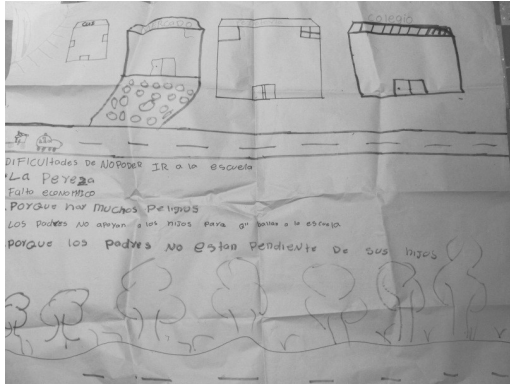 Casa
Colegio
DIFICUltades DE NO PODER IR a la escuela
La Pereza
Falto economico
.Porque hay muchos Peligros
Los Padres No apoyan a los hijos Para q' vallan a la escuela
.Porque los Padres No estan Pendiente De sus hijos